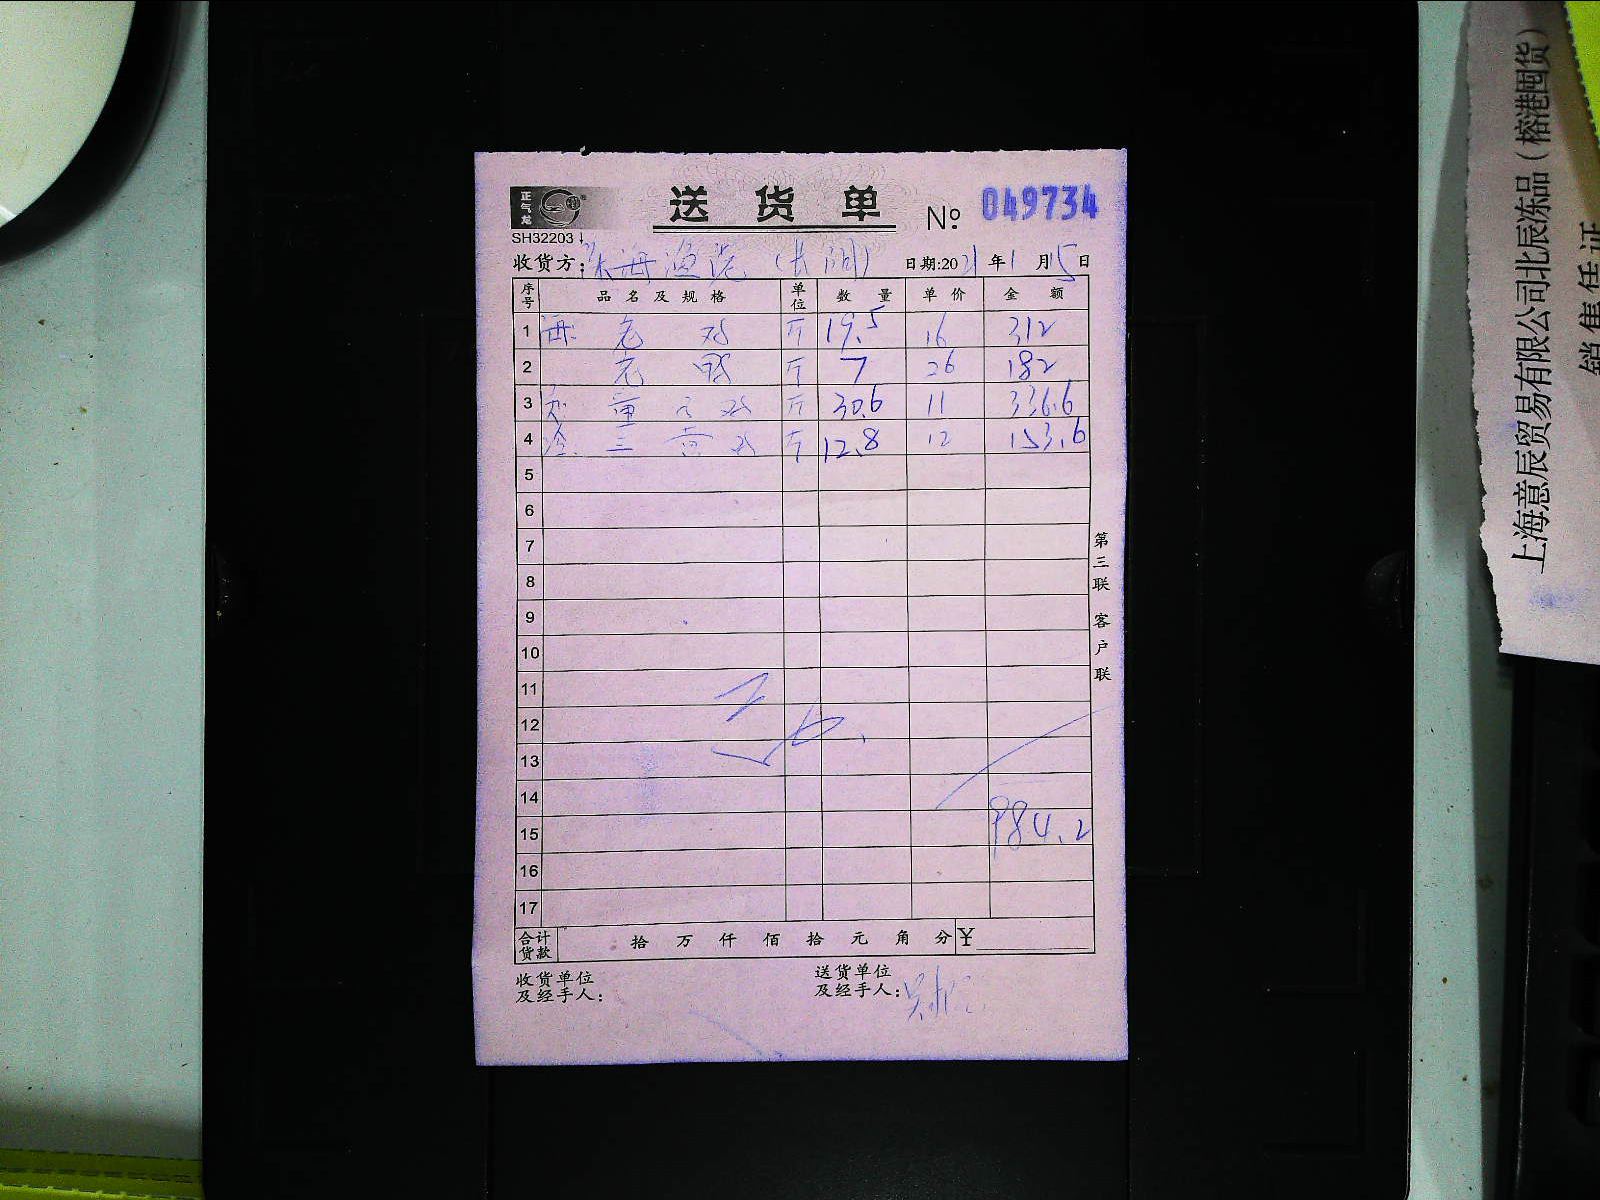 正气龙
送货单 № 049734
SH32203
收货方: 海渔港 日期:2021年1月15日
序号 品名及规格 单位 数量 单价 金额
1 老鸡 斤 19.5 16 312
2 老鸭 斤 7 26 182
3 斤 30.6 11 336.6
4 三黄鸡 斤 12.8 12 153.6
5
6
7
8
9
10
11
12
13
14
15 984.2
16
17
合计货款 拾万仟佰拾元角分 ¥
收货单位 送货单位
及经手人: 及经手人:
第三联 客户联
上海意辰贸易有限公司北辰冻品(榕港囤货)
销售任证